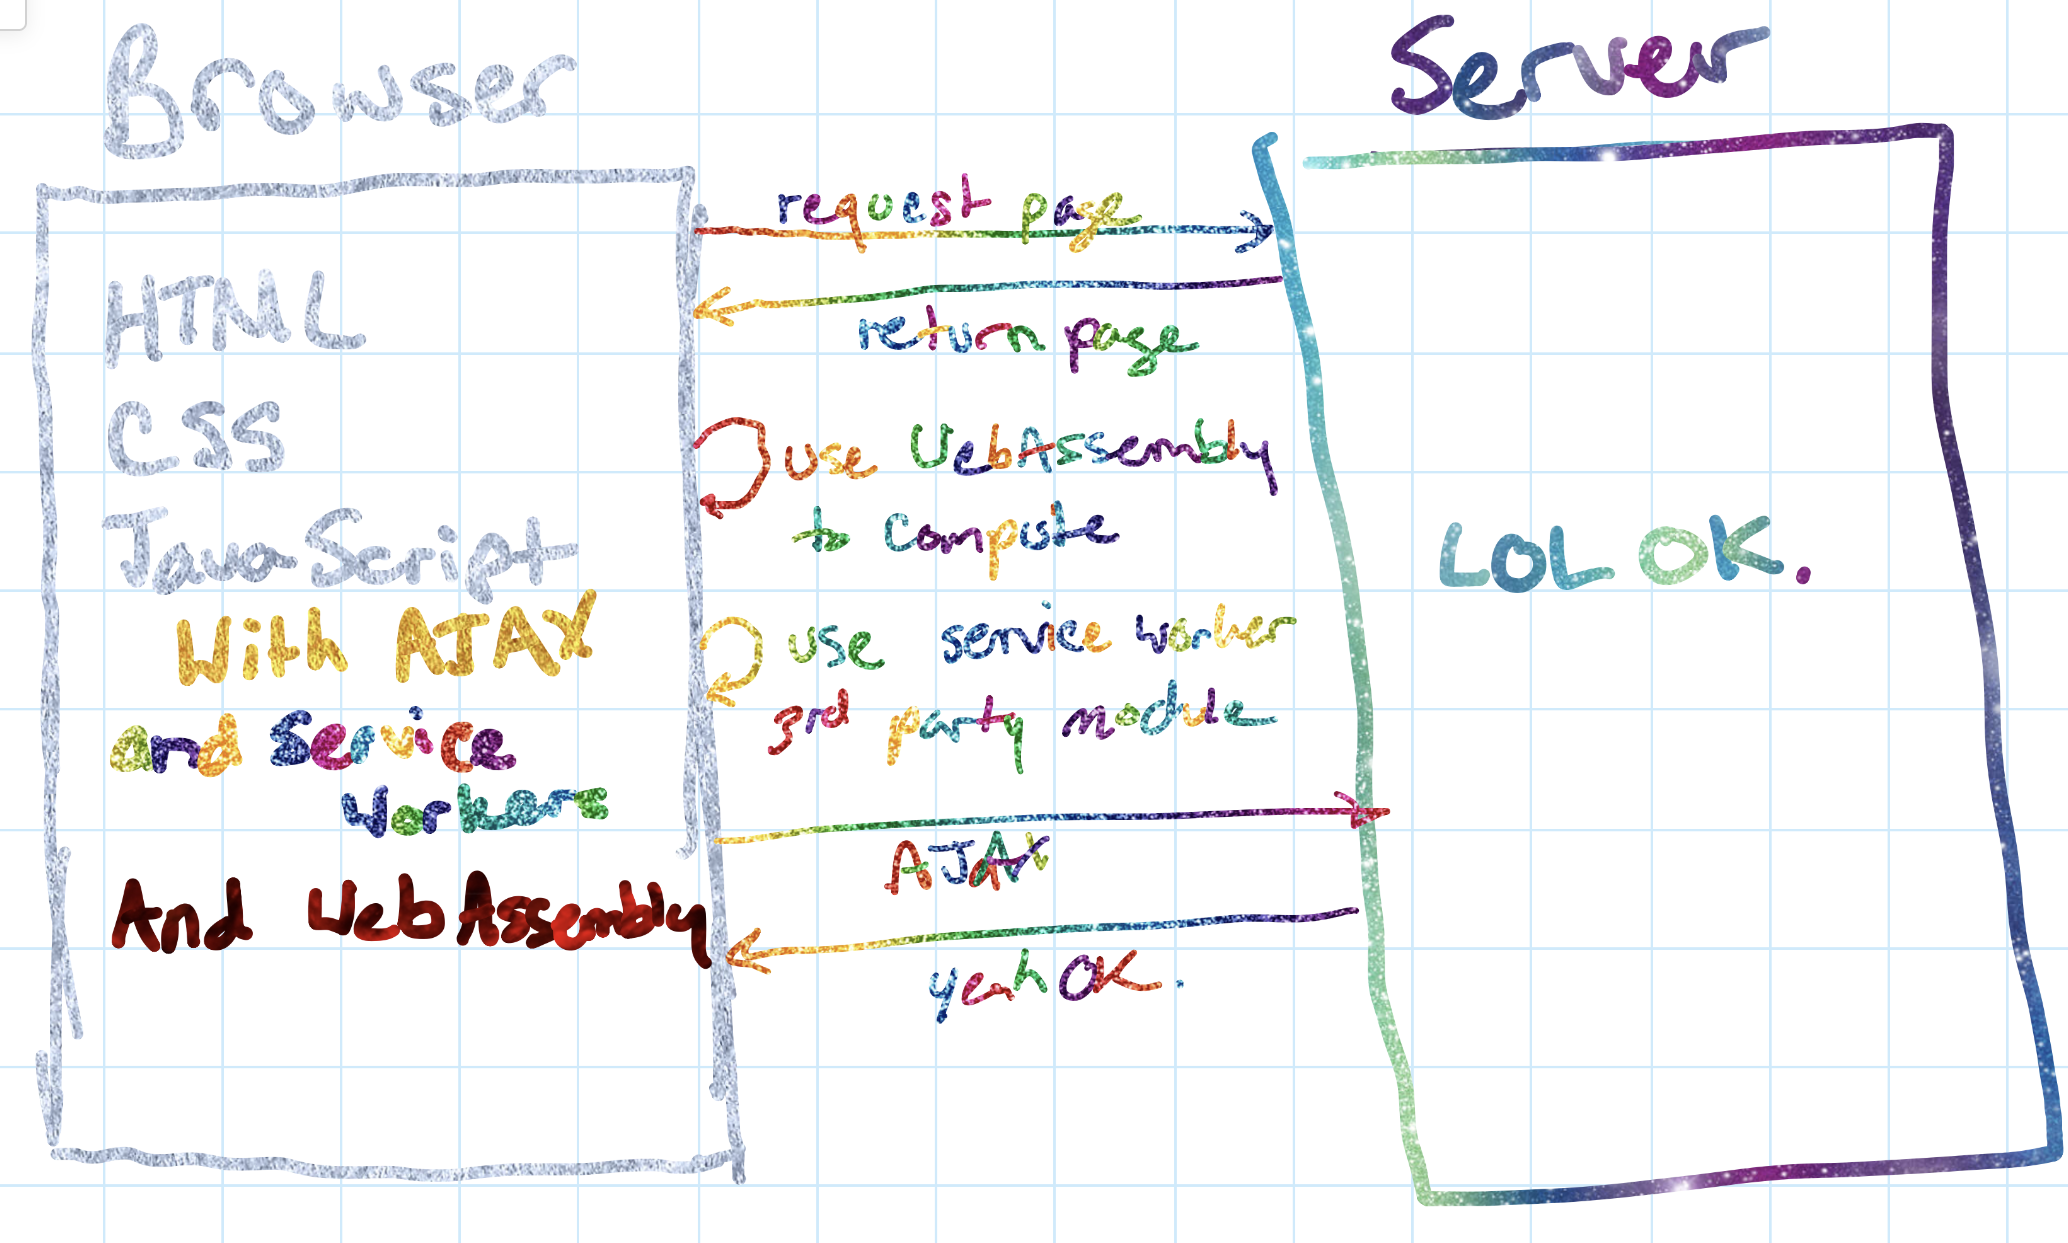 Browser
Server
HTML
CSS
JavaScript
With AJAX
and service
workers
And WebAssembly
request page
return page
use WebAssembly
to compute
use service worker
3rd party module
AJAX
yeah OK.
LOL OK.